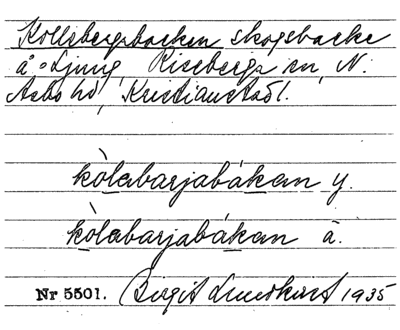 Kollebergsbacken skogsbacke
å Ljung, Riseberga sn, N.
Åsbo hd, Kristianstad l.
kòlabarjabákan y.
kòlabarjabákan ä.
Nr 5501. Birgit Lundkvist 1935